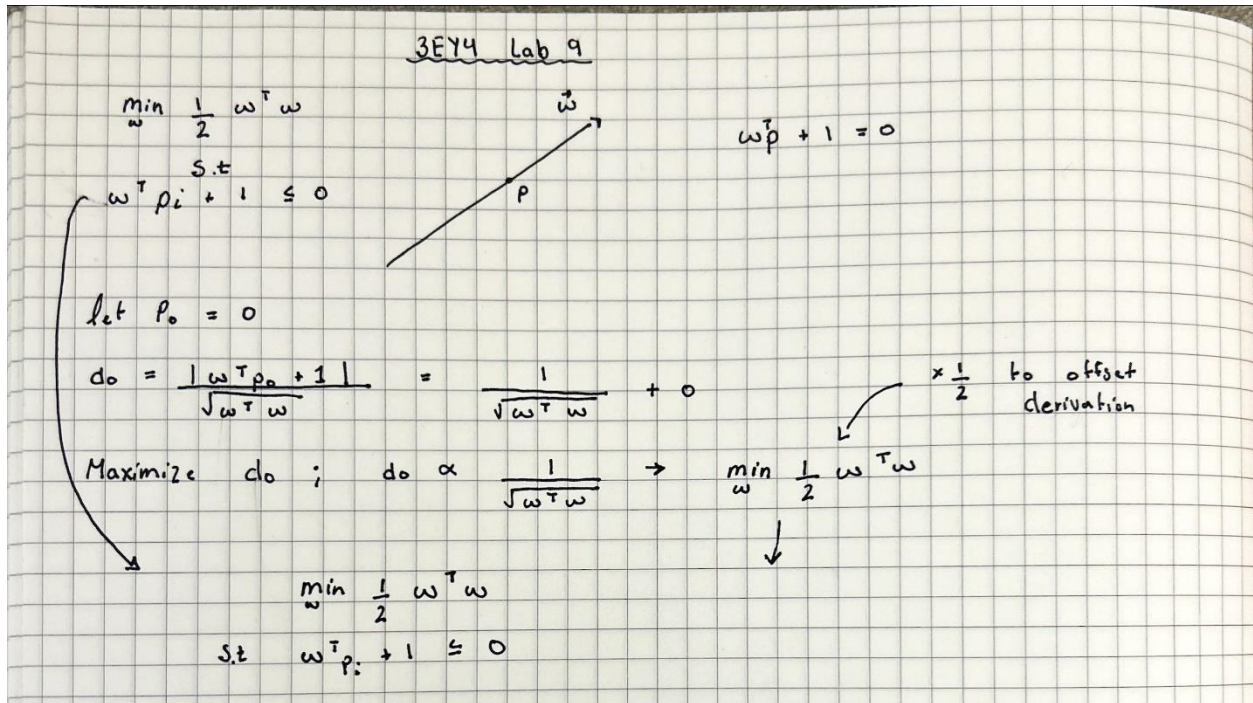 3EY4 Lab 9
min ω 1/2 ω^T ω
s.t
ω^T pi + 1 ≤ 0
ω⃗
p
ω^T p + 1 = 0
let P₀ = 0
d₀ = |ω^T p₀ + 1| / √(ω^T ω) = 1 / √(ω^T ω) + 0
× 1/2 to offset
derivation
Maximize d₀ ; d₀ ∝ 1 / √(ω^T ω) → min ω 1/2 ω^T ω
min ω 1/2 ω^T ω
s.t ω^T pi + 1 ≤ 0